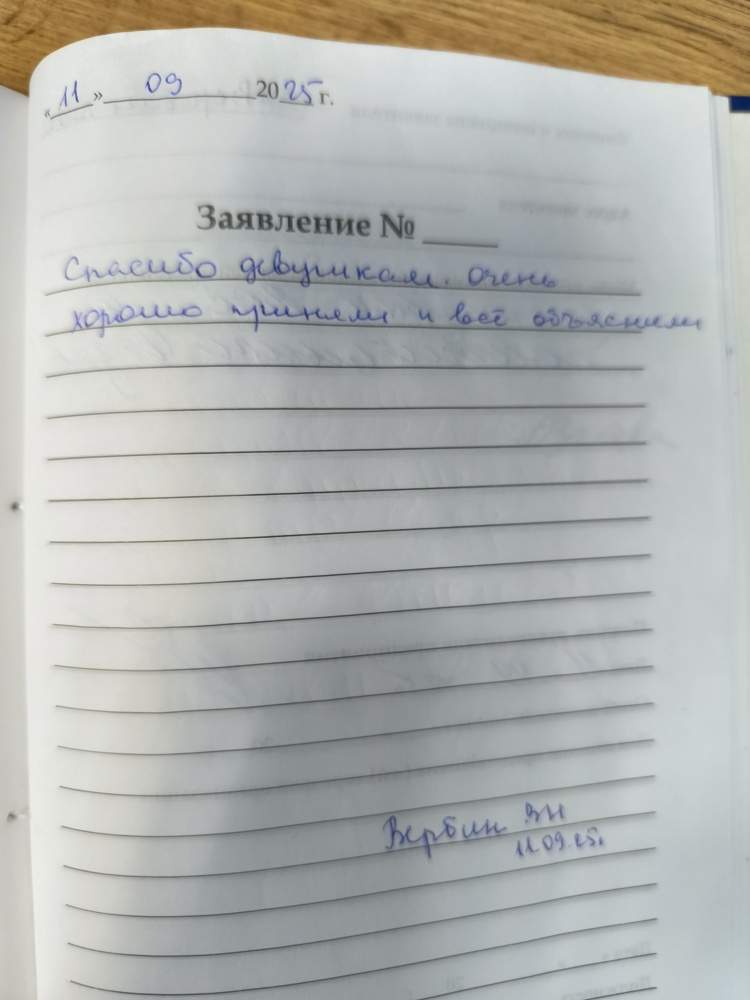 «11» 09 2025 г.
Заявление № ____
Спасибо девушкам. Очень
хорошо приняли и всё объяснили
Вербин ВН
11.09.25.